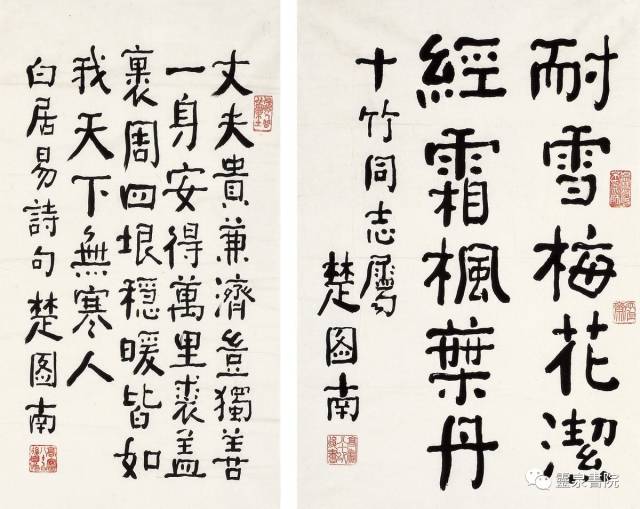 耐雪梅花潔
經霜楓葉丹
十竹同志屬
楚图南
丈夫貴兼濟豈獨善
一身安得萬里裘盖
裹周四垠穩暖皆如
我天下無寒人
白居易詩句楚图南
靈泉書院